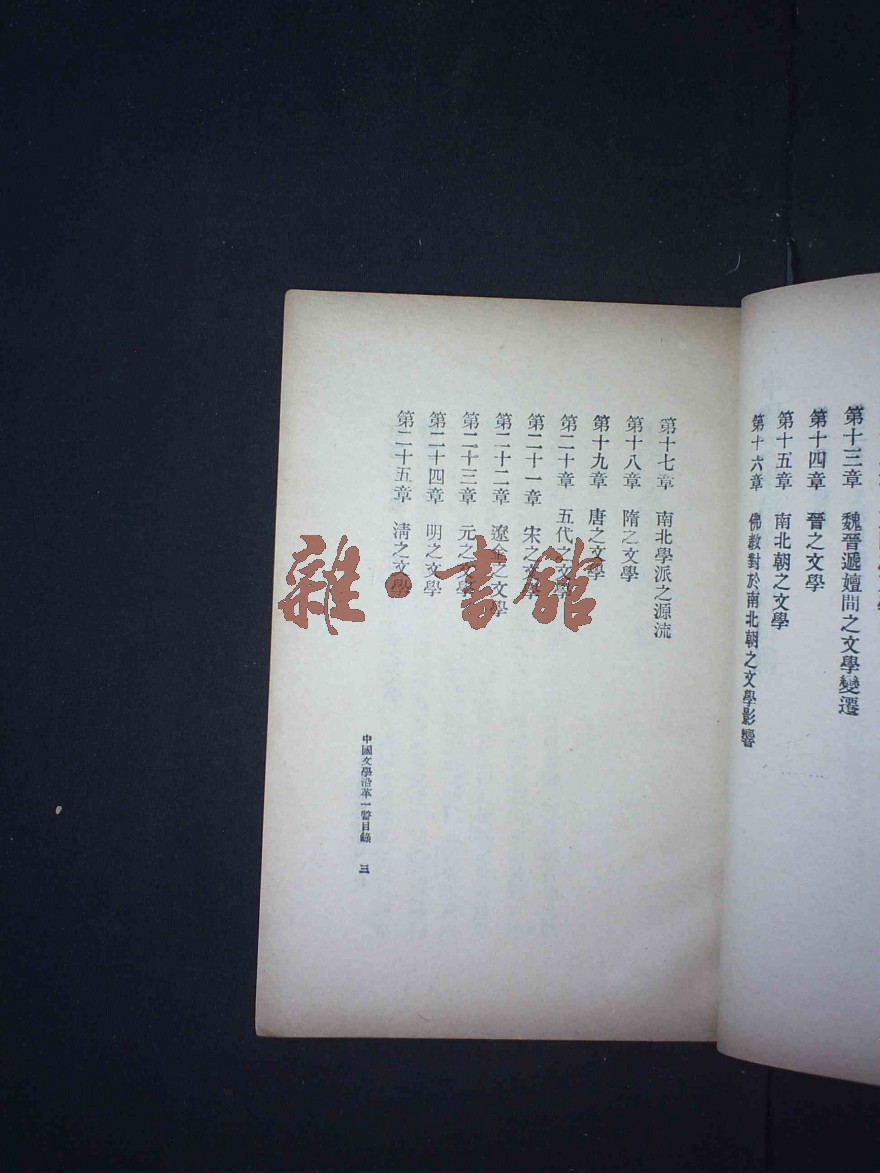 第十三章　魏晉遞嬗間之文學變遷
第十四章　晉之文學
第十五章　南北朝之文學
第十六章　佛教對於南北朝之文學影響
第十七章　南北學派之源流
第十八章　隋之文學
第十九章　唐之文學
第二十章　五代之文學
第二十一章　宋之文學
第二十二章　遼金之文學
第二十三章　元之文學
第二十四章　明之文學
第二十五章　清之文學
中國文學沿革一瞥目錄　三
雜·書館